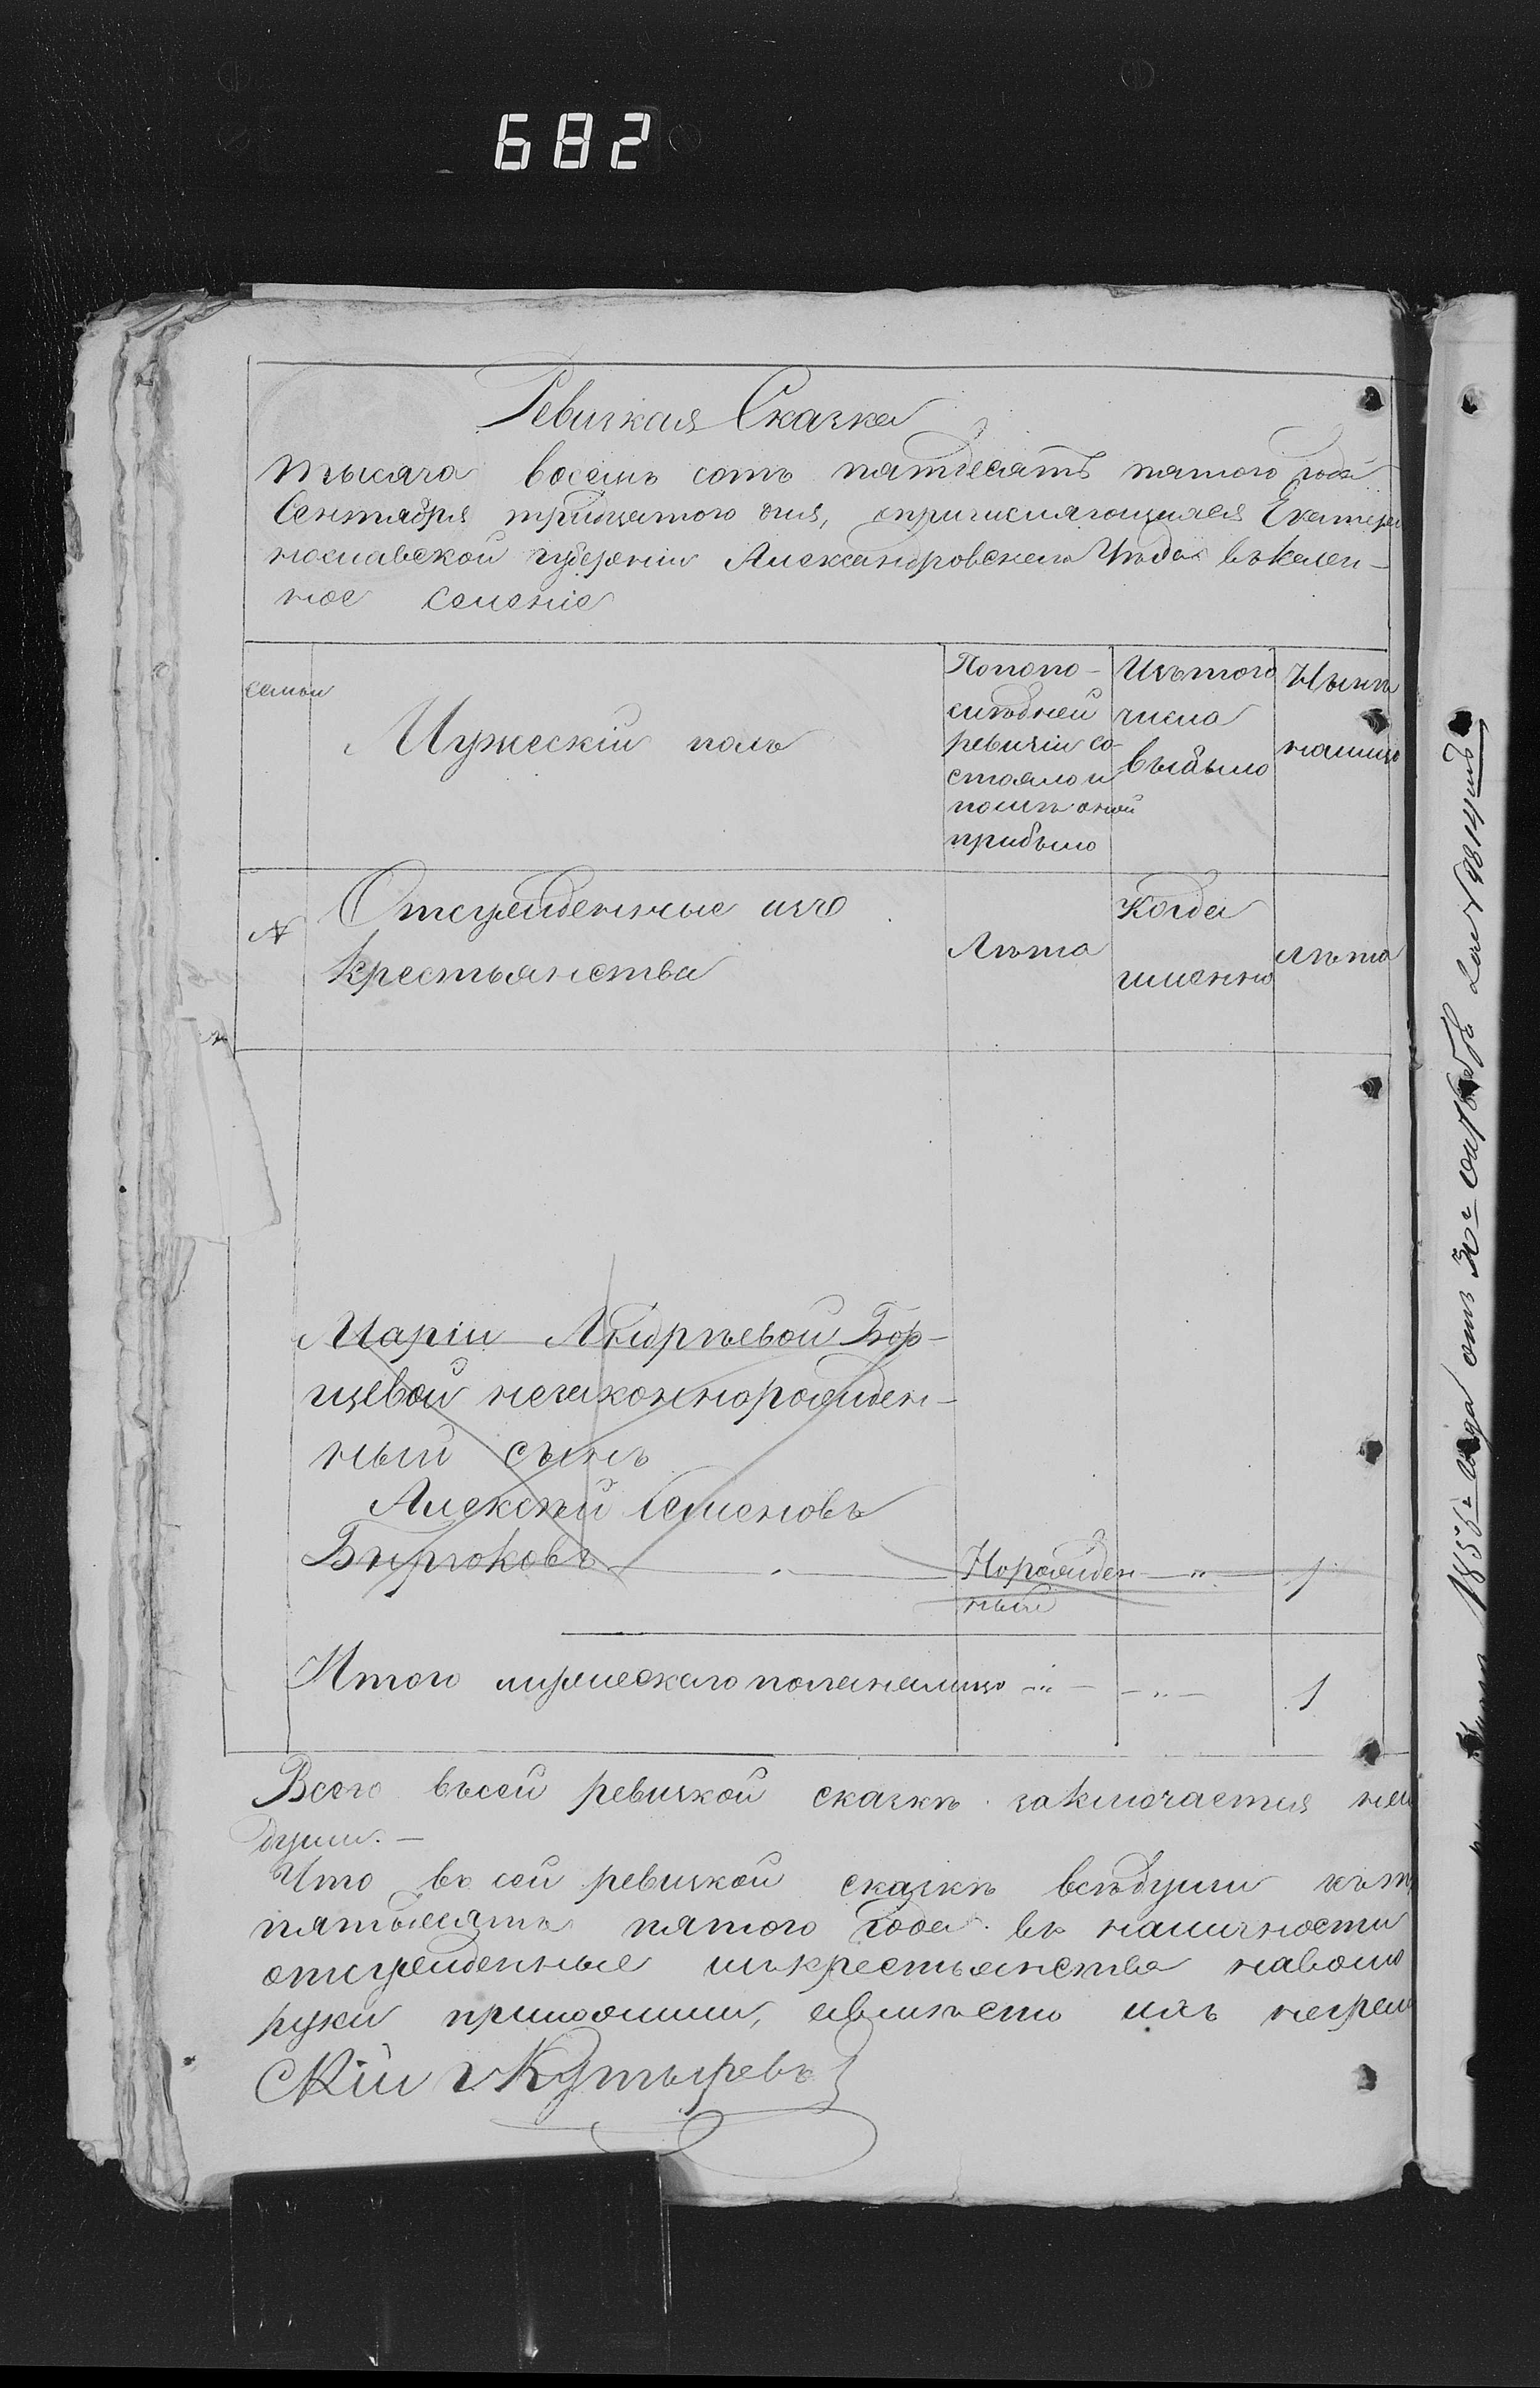 682
Ревизкая Сказка
тысяча восемь сотъ пятдесятъ пятого года
Сентября тридцатого дня, опричисляющихся Екатери
нославской губерніи Александровскаго Уѣзда въказен-
ное селеніе
семьи
Мужескій полъ
Попопо-
слѣдней
ревизіи со-
стояло и
послѣ оной
прибыло
Изътого
числа
выбыло
Нынѣ
налицо
№
Отсужденные изъ
крестьянства
Лѣта
Когда
именно
лѣта
Маріи Андрѣевой Бор-
щевой незаконнорожден-
ный сынъ
Алексѣй Семеновъ
Бирюковъ
Норожден
ный
1
Итого мужескаго поланалицо 1
Всего въсей ревизкой сказкѣ заключается
души.
Что въ сей ревизкой сказкѣ всѣдуши
пятьдесятъ пятого года въ наличности
отсужденные изъкрестьянства
руки приложили, авмѣсто ихъ неграм
скій Кутыревъ
1855 года отъ 31 октября за № 9814